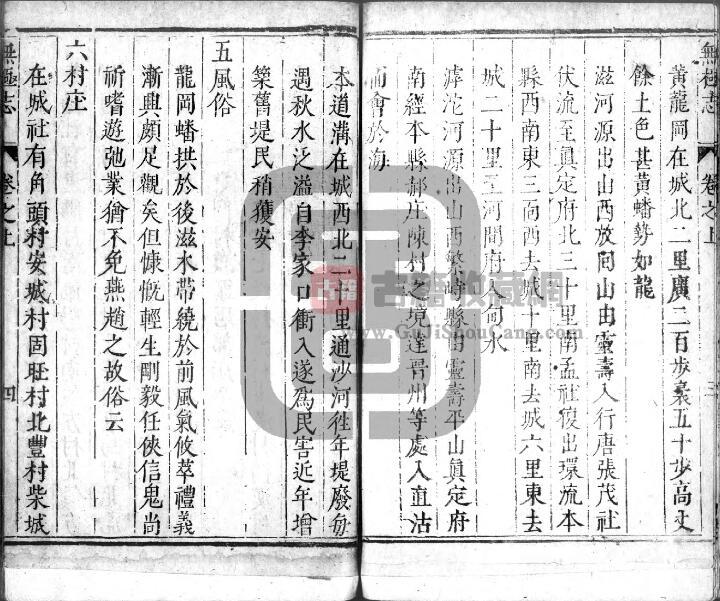 無極志 卷之上 三
黃龍岡在城北二里廣二百步袤五十步高丈
餘土色甚黃蟠勢如龍
滋河源出山西放向山由靈壽入行唐張茂社
伏流至眞定府北三十里南孟社復出環流本
縣西南東三面西去城十里南去城六里東去
城二十里至河間府入
滹沱河源出山西繁峙縣由靈壽平山眞定府
南經本縣郝庄陳村之境達晋州等處入直沽
而會於海
木道溝在城西北二十里通沙河徃年堤廢每
遇秋水泛溢自李家口衝入遂爲民害近年增
築舊堤民稍獲安
五風俗
龍岡蟠拱於後滋水帶繞於前風氣攸萃禮義
漸興頗足觀矣但慷慨輕生剛毅任俠信鬼尚
祈嗜遊弛業猶不免燕趙之故俗云
六村庄
在城社有角頭村安城村固旺村北豐村柴城
無極志 卷之上 四
古籍收藏網
www.GuJiShouCang.com